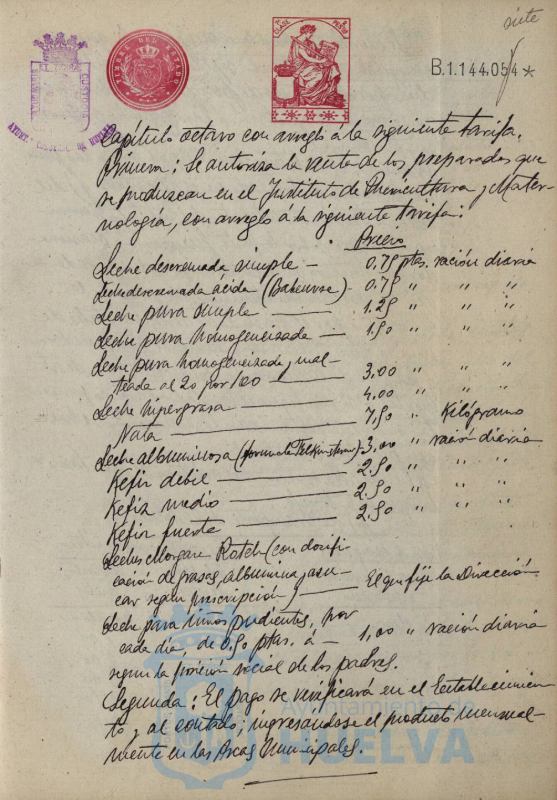 siete
B.1.144.054*
1ª CLASE PESETAS
TIMBRE DEL ESTADO
AYUNT. DE HUELVA
Capítulo octavo con arreglo á la siguiente tarifa.
Primera: Se autoriza la venta de los preparados que
se produzcan en el Instituto de Puericultura y Mater-
nología, con arreglo á la siguiente tarifa:
Precio
Leche descremada simple — 0.75 ptas. ración diaria
Leche descremada ácida (Babeurre) — 0.75 " " "
Leche pura simple — 1.25 " " "
Leche pura homogeneizada — 1.50 " " "
Leche pura homogeneizada y mal-
teada al 20 por 100 — 3.00 " " "
Leche hipergrasa — 4.00 " " "
Nata — 7.50 " Kilógramo
Leche albuminosa (formula Felkinstein) — 3.00 " ración diaria
Kefir debil — 2.50 " " "
Kefir medio — 2.50 " " "
Kefir fuerte — 2.50 " " "
Leches Morgan Rotch (con dosifi-
cación de grasas, albumina y azu-
car segun prescripcion) — El que fije la Dirección
Leche para niños pudientes, por
cada dia, de 0.50 ptas. á — 1,00 " ración diaria
segun la posición social de los padres.
Segunda: El pago se verificará en el Establecimien-
to y al contado, ingresandose el producto mensual-
mente en las Arcas Municipales.
Ayuntamiento de
HUELVA